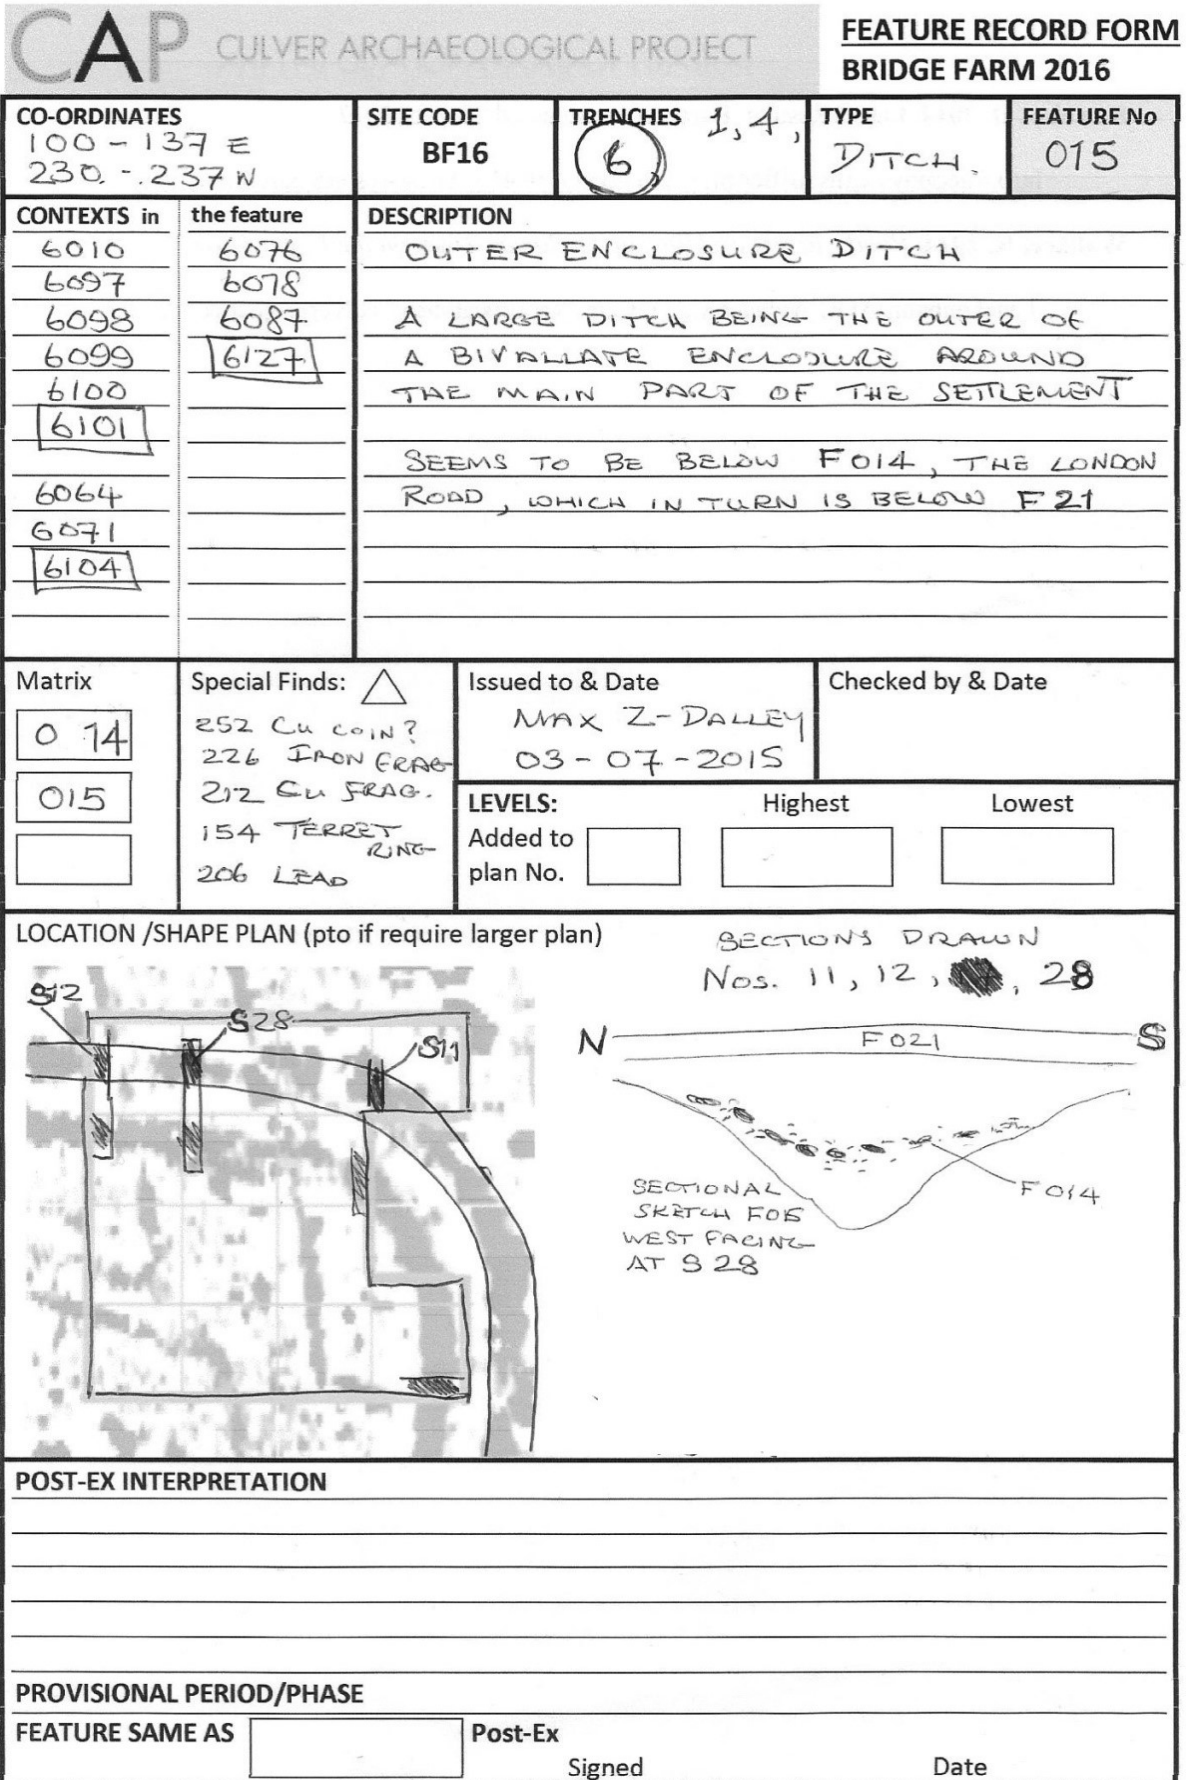 CAP CULVER ARCHAEOLOGICAL PROJECT
FEATURE RECORD FORM
BRIDGE FARM 2016
CO-ORDINATES
100 - 137 E
230. - .237 W
SITE CODE
BF16
TRENCHES 1, 4,
6,
TYPE
DITCH.
FEATURE No
015
CONTEXTS in the feature
6010 6076
6097 6078
6098 6087
6099 6127
6100
6101
6064
6071
6104
DESCRIPTION
OUTER ENCLOSURE DITCH
A LARGE DITCH BEING THE OUTER OF
A BIVALLATE ENCLOSURE AROUND
THE MAIN PART OF THE SETTLEMENT
SEEMS TO BE BELOW F014, THE LONDON
ROAD, WHICH IN TURN IS BELOW F21
Matrix
014
015
Special Finds:
252 Cu COIN?
226 IRON FRAG
212 Cu FRAG.
154 TERRET
RING
206 LEAD
Issued to & Date
MAX Z-DALLEY
03-07-2015
Checked by & Date
LEVELS: Highest Lowest
Added to
plan No.
LOCATION /SHAPE PLAN (pto if require larger plan)
S12
S28
S11
SECTIONS DRAWN
Nos. 11, 12, , 28
N F021 S
F014
SECTIONAL
SKETCH F015
WEST FACING
AT S28
POST-EX INTERPRETATION
PROVISIONAL PERIOD/PHASE
FEATURE SAME AS Post-Ex
Signed Date